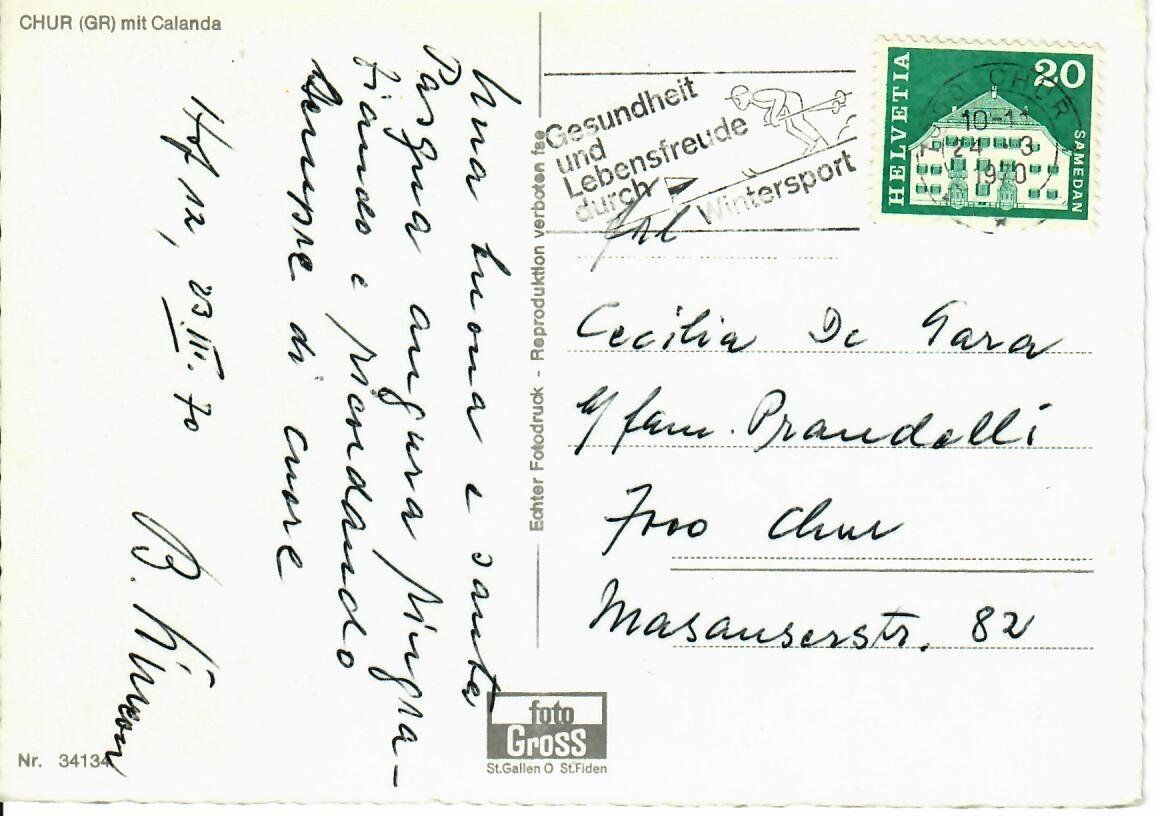 CHUR (GR) mit Calanda
Una buona e santa
Pasqua augura ringra-
ziando e ricordando
sempre di cuore
Hof 12, 23.III.70
B.
Nr. 34134
Echter Fotodruck - Reproduktion verboten
foto
Gross
St.Gallen O St.Fiden
Gesundheit
und
Lebensfreude
durch
Wintersport
HELVETIA
20
SAMEDAN
CHUR
10-11
24 -3
1970
Frl
Cecilia De Gara
c/ fam. Prandelli
7000 Chur
Masanserstr. 82